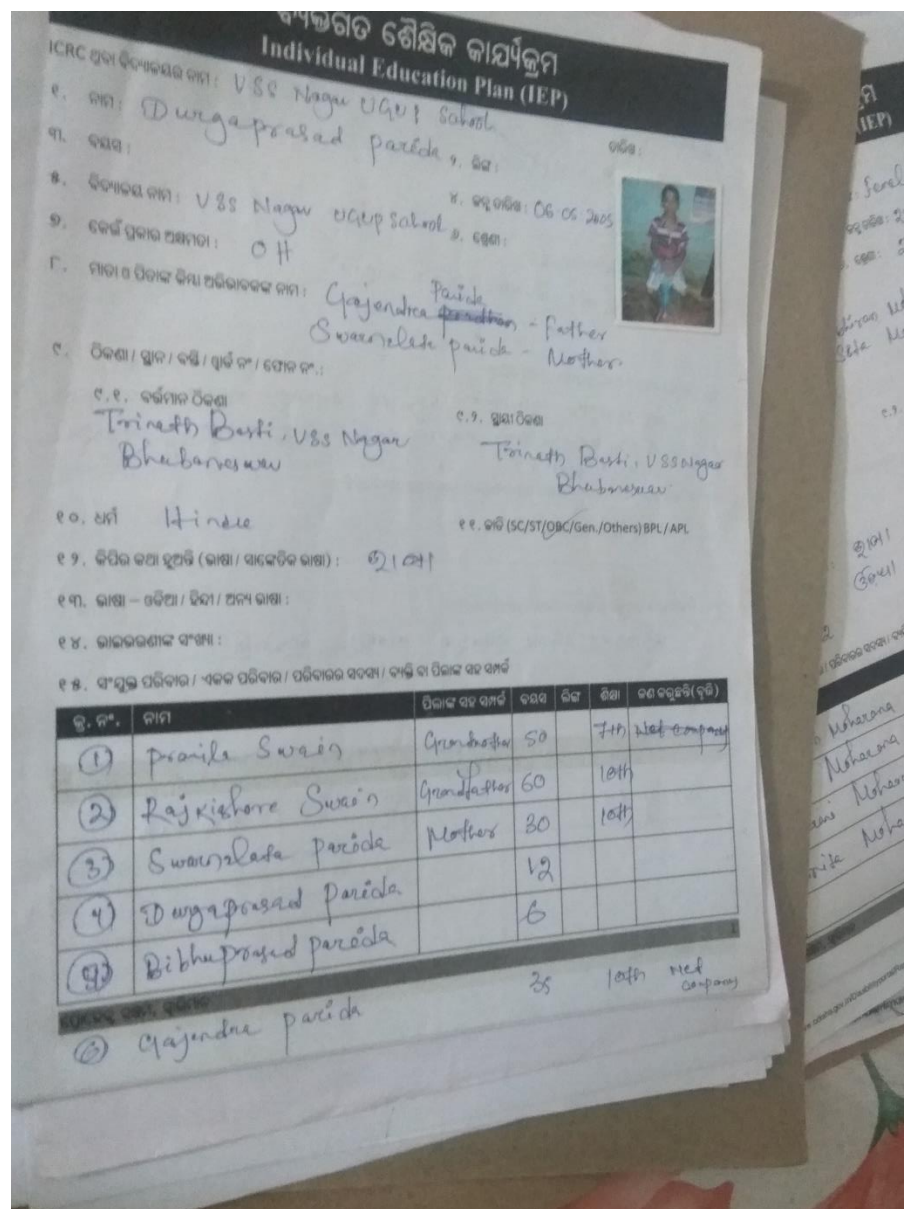 ବ୍ୟକ୍ତିଗତ ଶୈକ୍ଷିକ କାର୍ଯ୍ୟକ୍ରମ
Individual Education Plan (IEP)
ICRC ଥିବା ବିଦ୍ୟାଳୟର ନାମ : VSS Nagar UGUP School
୧. ନାମ : Durgaprasad parida ୨. ଲିଙ୍ଗ : ତାରିଖ :
୩. ବୟସ : ୪. ଜନ୍ମ ତାରିଖ : 06 05 2005
୫. ବିଦ୍ୟାଳୟ ନାମ : VSS Nagar UGUP School ୬. ଶ୍ରେଣୀ :
୭. କେଉଁ ପ୍ରକାର ଅକ୍ଷମତା : OH
୮. ମାତା ଓ ପିତାଙ୍କ କିମ୍ବା ଅଭିଭାବକଙ୍କ ନାମ : Gajendra Parida - father
Swarnalata parida - Mother
୯. ଠିକଣା / ସ୍ଥାନ / ବସ୍ତି / ୱାର୍ଡ ନଂ / ଫୋନ ନଂ.:
୯.୧. ବର୍ତ୍ତମାନ ଠିକଣା
Trinath Basti, VSS Nagar
Bhubaneswar
୯.୨. ସ୍ଥାୟୀ ଠିକଣା
Trinath Basti, VSS Nagar
Bhubaneswar
୧୦. ଧର୍ମ Hindu ୧୧. ଜାତି (SC/ST/OBC/Gen./Others) BPL / APL
୧୨. କିପରି କଥା ହୁଅନ୍ତି (ଭାଷା / ସାଙ୍କେତିକ ଭାଷା) : ଭାଷା
୧୩. ଭାଷା – ଓଡିଆ / ହିନ୍ଦୀ / ଅନ୍ୟ ଭାଷା :
୧୪. ଭାଇଭଉଣୀଙ୍କ ସଂଖ୍ୟା :
୧୫. ସଂଯୁକ୍ତ ପରିବାର / ଏକକ ପରିବାର / ପରିବାରର ସଦସ୍ୟ / ବ୍ୟକ୍ତି ବା ପିଲାଙ୍କ ସହ ସମ୍ପର୍କ
କ୍ର. ନଂ. ନାମ ପିଲାଙ୍କ ସହ ସମ୍ପର୍କ ବୟସ ଲିଙ୍ଗ ଶିକ୍ଷା କଣ କରୁଛନ୍ତି (ବୃତ୍ତି)
1 Pramila Swain Grandmother 50 7th
2 Rajkishore Swain Grandfather 60 10th
3 Swarnalata Parida Mother 30 10th
4 Durgaprasad Parida 12
5 Bibhuprasad parida 6
1
6 Gajendra Parida 35 10th Net company